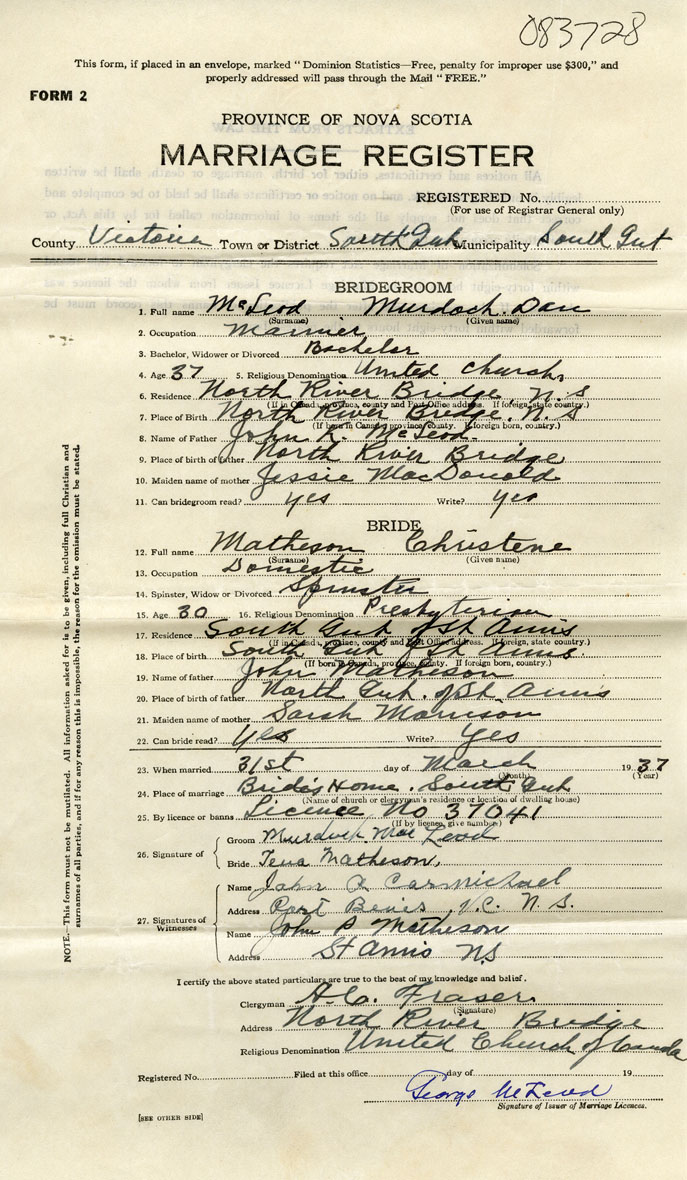 083728
This form, if placed in an envelope, marked "Dominion Statistics—Free, penalty for improper use $300," and
properly addressed will pass through the Mail "FREE."
FORM 2
PROVINCE OF NOVA SCOTIA
MARRIAGE REGISTER
REGISTERED No.
(For use of Registrar General only)
County Victoria Town or District South Gut Municipality South Gut
BRIDEGROOM
1. Full name McLeod Murdoch Dan
(Surname) (Given name)
2. Occupation Marinier
3. Bachelor, Widower or Divorced Bachelor
4. Age 37 5. Religious Denomination United Church
6. Residence North River Bridge, N.S
(If in Canada, province, county and Post Office address. If foreign, state country.)
7. Place of Birth North River Bridge, N.S
(If born in Canada, province, county. If foreign born, country.)
8. Name of Father John K. McLeod
9. Place of birth of father North River Bridge
10. Maiden name of mother Jessie MacDonald
11. Can bridegroom read? yes Write? yes
BRIDE
12. Full name Matheson Christene
(Surname) (Given name)
13. Occupation Domestic
14. Spinster, Widow or Divorced Spinster
15. Age 30 16. Religious Denomination Presbyterian
17. Residence South Gut of St Annis
(If in Canada, province, county and Post Office address. If foreign, state country.)
18. Place of birth South Gut of St Annis
(If born in Canada, province, county. If foreign born, country.)
19. Name of father John Matheson
20. Place of birth of father North Gut of St Annis
21. Maiden name of mother Sarah Morrison
22. Can bride read? yes Write? yes
23. When married 31st day of March 1937
(Month) (Year)
24. Place of marriage Bride's Home. South Gut
(Name of church or clergyman's residence or location of dwelling house)
25. By licence or banns Licence No 37041
(If by licence, give number)
26. Signature of
Groom Murdoch Mac Leod
Bride Tena Matheson,
27. Signatures of Witnesses
Name John A Carmichael
Address Port Bevis, V.C. N.S.
Name John P Matheson
Address St Annis NS
I certify the above stated particulars are true to the best of my knowledge and belief.
Clergyman A.C. Fraser
(Signature)
Address North River Bridge
Religious Denomination United Church of Canada
Registered No. Filed at this office day of 19
George McLeod
Signature of Issuer of Marriage Licences.
[SEE OTHER SIDE]
NOTE.—This form must not be mutilated. All information asked for is to be given, including full Christian and
surnames of all parties, and if for any reason this is impossible, the reason for the omission must be stated.